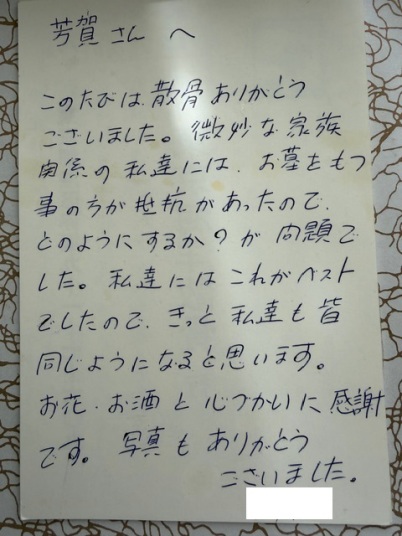 芳賀さんへ
このたびは、散骨ありがとう
ございました。微妙な家族
関係の私達には、お墓をもつ
事の方が抵抗があったので、
どのようにするか?が問題で
した。私達にはこれがベスト
でしたので、きっと私達も皆
同じようになると思います。
お花、お酒と心づかいに感謝
です。写真もありがとう
ございました。